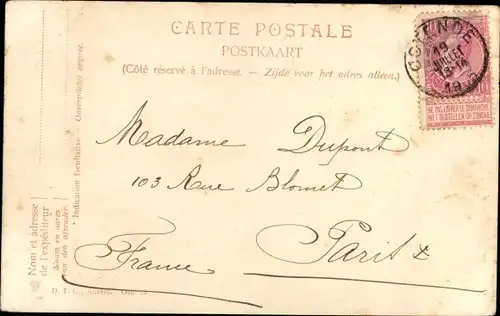 CARTE POSTALE
POSTKAART
(Côté réservé à l'adresse. — Zijde voor het adres alleen.)
OSTENDE
19
JUILLET
19
NE PAS LIVRER LE DIMANCHE
NIET BESTELLEN OP ZONDAG
Madame Dupont
103 Rue Blomet
Paris
France
Nom et adresse
de l'expéditeur
Naam en adres
van den afzender.
Indication facultative — Onverplichte opgave.